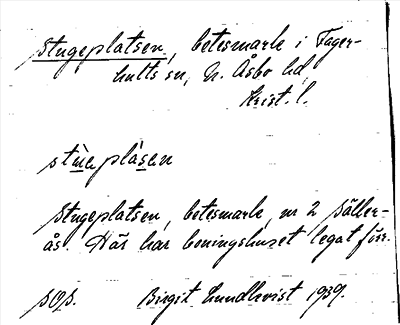 Stugeplatsen, betesmark i Fager-
hults sn, N. Åsbo hd,
Krist. l.
stùe plàsen
Stugeplatsen, betesmark, nr 2 Säller-
ås. Här har boningshuset legat förr.
Birgit Lundkvist 1939.